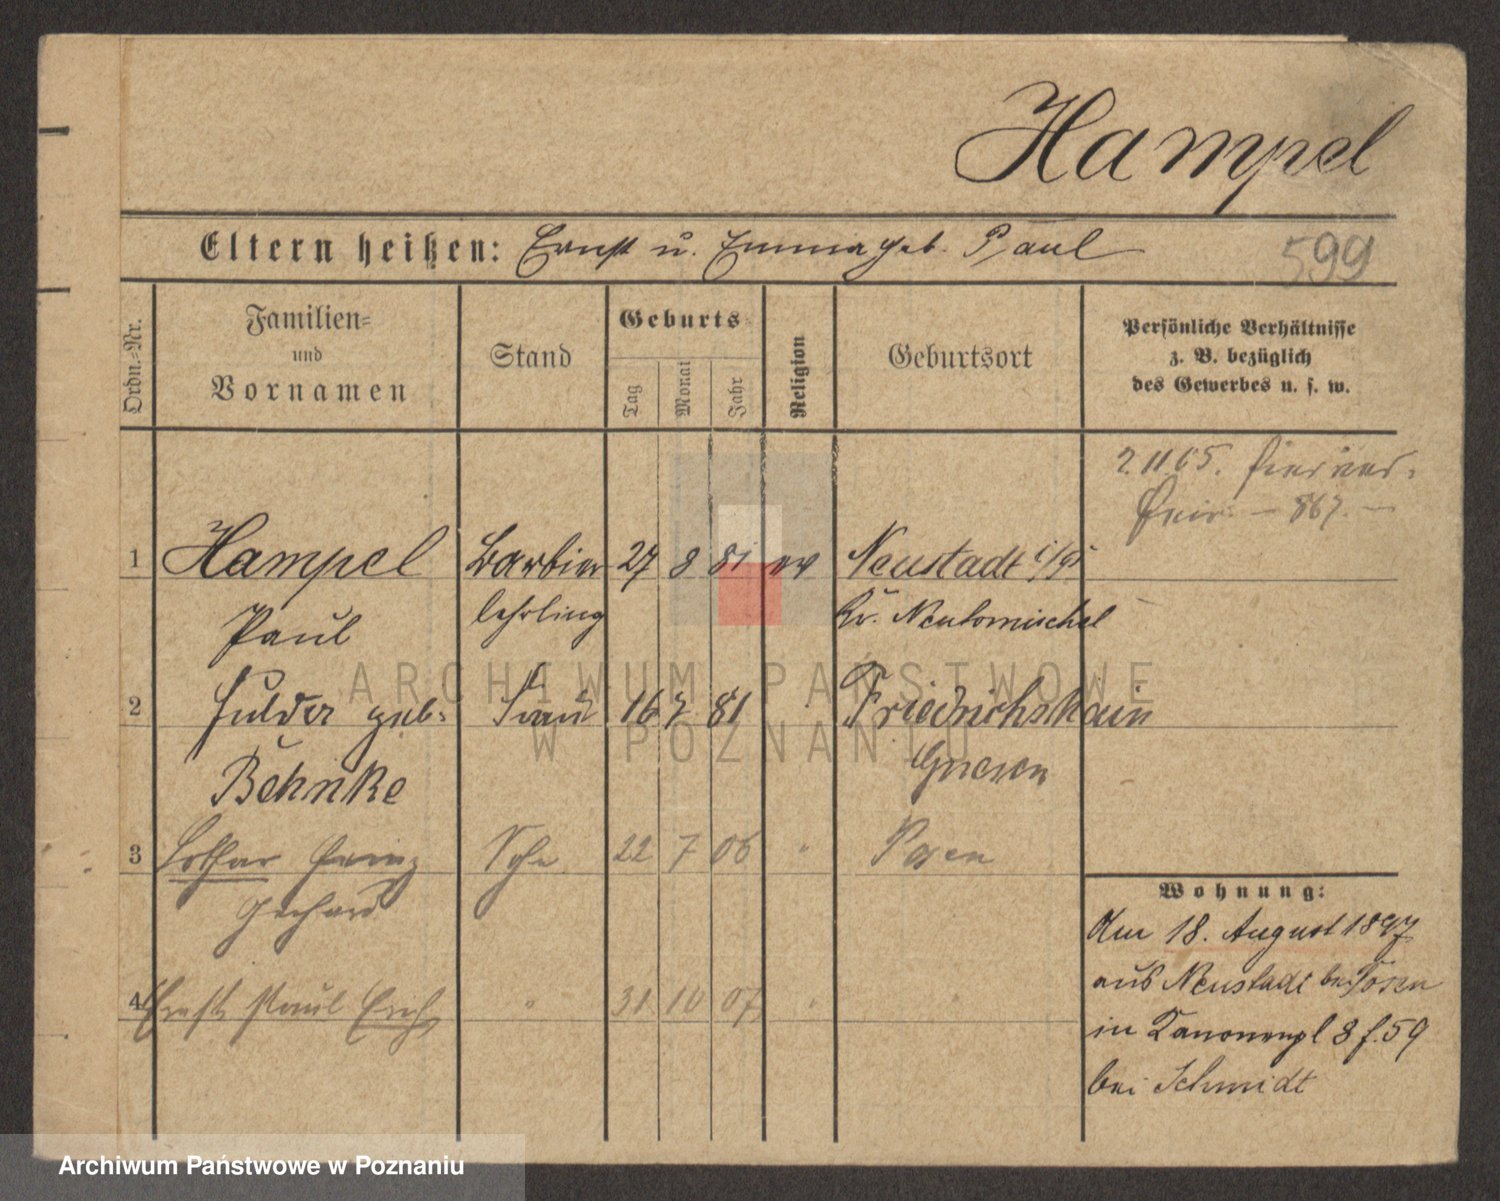 Hampel
Eltern heißen: Ernst u. Emma geb. Paul
599
Ordn.-Nr.
Familien-
und
Vornamen
Stand
Geburts-
Tag
Monat
Jahr
Religion
Geburtsort
Persönliche Verhältnisse
z. B. bezüglich
des Gewerbes u. s. w.
867.
1 Hampel Barbier 27 8 81 ev Neustadt
Paul lehrling Kr. Neutomischel
2 Hulda geb. Frau 16 7 81 Friedrichshain
Behnke Gnesen
3 Lothar Heinz Sohn 22 7 06 " Posen
Gerhard
4 Ernst Paul Erich " 31 10 07 " "
Wohnung:
Am 18. August 1897
aus Neustadt bei Posen
in Kanonenpl 8 f. 59
bei Schmidt
ARCHIWUM PAŃSTWOWE
W POZNANIU
Archiwum Państwowe w Poznaniu